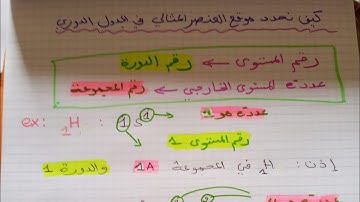 كيف نحدد موقع العنصر المثالي في الجدول الدوري
رقم المستوى ← رقم الدورة
عدد e المستوى الخارجي ← رقم المجموعة
ex: ₁H : 1S¹
عدده هو 1
رقم المستوى 1
إذن: ₁H في المجموعة 1A والدورة 1